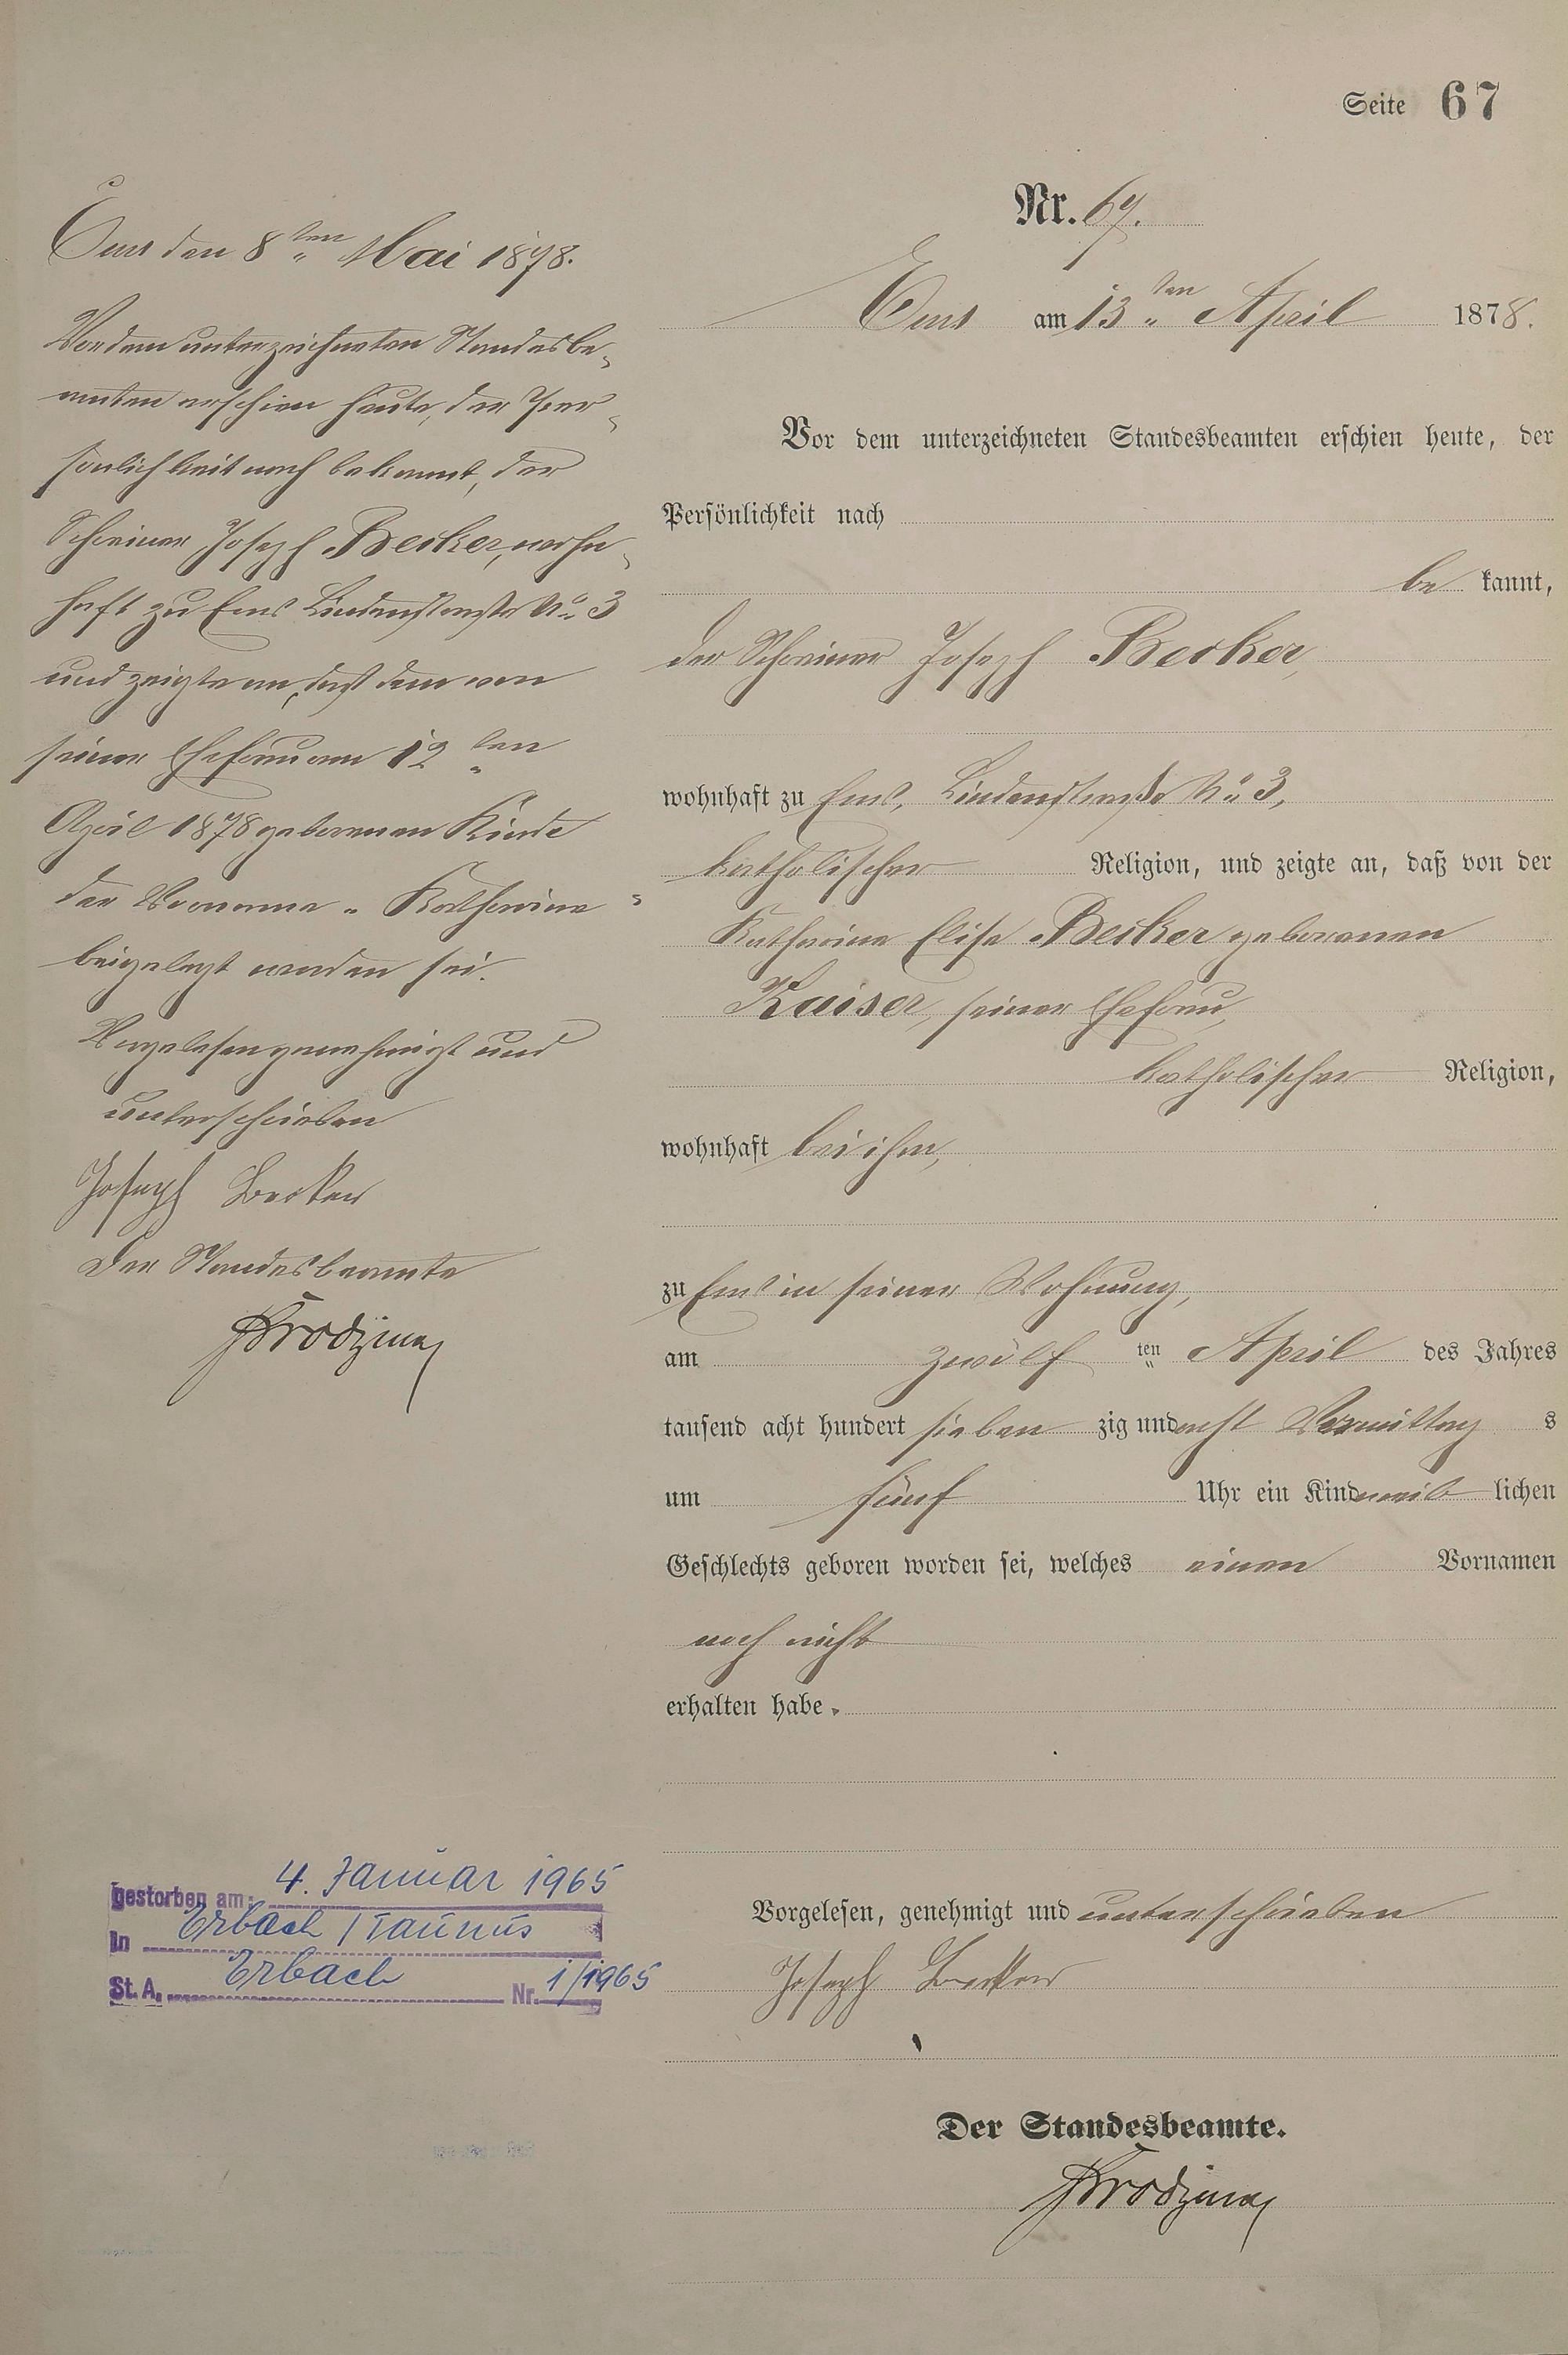 Seite 67
Nr. 67.
Ems am 13ten April 1878.
Vor dem unterzeichneten Standesbeamten erschien heute, der
Persönlichkeit nach
be kannt,
der Schreiner Joseph Becker,
wohnhaft zu Ems, Lindenstraße No 3,
katholischer Religion, und zeigte an, daß von der
Katharina Elise Becker geborenen
Kaiser, seiner Ehefrau,
katholischer Religion,
wohnhaft bei ihm,
zu Ems in seiner Wohnung,
am zwölf ten April des Jahres
tausend acht hundert sieben zig und acht Vormittag s
um fünf Uhr ein Kind weib lichen
Geschlechts geboren worden sei, welches einen Vornamen
noch nicht
erhalten habe.
Vorgelesen, genehmigt und unterschrieben
Joseph Becker
Der Standesbeamte.
Ems den 8ten Mai 1878.
Vor dem unterzeichneten Standesbe-
amten erschien heute, der Per-
sönlichkeit nach bekannt, der
Schreiner Joseph Becker, wohn-
haft zu Ems Lindenstraße No 3
und zeigte an, daß dem von
seiner Ehefrau am 12ten
April 1878 geborenen Kinde
der Vorname "Katharina"
beigelegt worden sei.
Vorgelesen genehmigt und
unterschrieben
Joseph Becker
Der Standesbeamte
gestorben am: 4. Januar 1965
in Erbach / Taunus
St. A. Erbach Nr. 1/1965